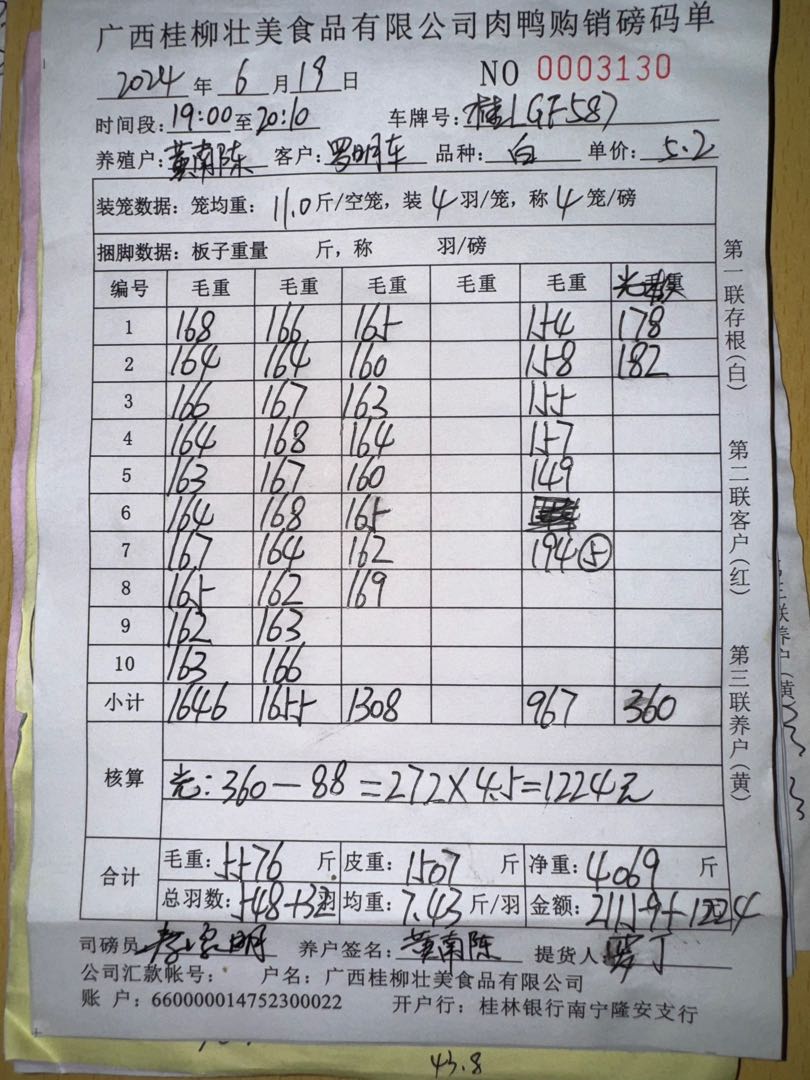 广西桂柳壮美食品有限公司肉鸭购销磅码单
2024 年 6 月 19 日 NO 0003130
时间段: 19:00 至 20:10 车牌号: 桂LGF587
养殖户: 黄南陈 客户: 罗明车 品种: 白 单价: 5.2
装笼数据: 笼均重: 11.0 斤/空笼, 装 4 羽/笼, 称 4 笼/磅
捆脚数据: 板子重量 斤, 称 羽/磅
编号 毛重 毛重 毛重 毛重 毛重
1 168 166 165 154 178
2 164 164 160 158 182
3 166 167 163 155
4 164 168 164 157
5 163 167 160 149
6 164 168 165
7 167 164 162 194 ⑤
8 165 162 169
9 162 163
10 163 166
小计 1646 1655 1308 967 360
核算 光: 360-88=272×4.5=1224元
合计 毛重: 5576 斤 皮重: 1507 斤 净重: 4069 斤
总羽数: 548+32 羽 均重: 7.43 斤/羽 金额: 21159+1224
司磅员 明 养户签名: 黄南陈 提货人
公司汇款帐号: 户名: 广西桂柳壮美食品有限公司
账 户: 660000014752300022 开户行: 桂林银行南宁隆安支行
第一联存根(白)
第二联客户(红)
第三联养户(黄)
43.8